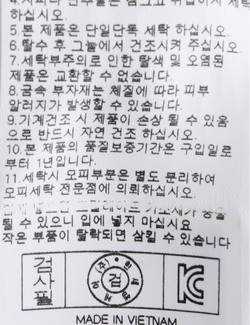 4.지퍼나 단추를은 잠그고 뒤집어서 세탁
하십시오.
5.본 제품은 단일단독 세탁 하십시오.
6.탈수 후 그늘에서 건조시켜 주십시오
7.세탁부주의로 인한 탈색 및 오염된
제품은 교환할 수 없습니다.
8.금속 부자재는 체질에 따라 피부
알러지가 발생할 수 있습니다.
9.기계건조 시 제품이 손상 될 수 있음
으로 반드시 자연 건조 하십시오.
10.본 제품의 품질보증기간은 구입일로
부터 1년입니다.
11.세탁시 모피부문은 별도 분리하여
모피세탁 전문점에 의뢰하십시오.
될 수 있으니 입에 넣지 마십시요
작은 부품이 탈락되면 삼킬 수 있습니다
검사필
(주)한
검
MADE IN VIETNAM